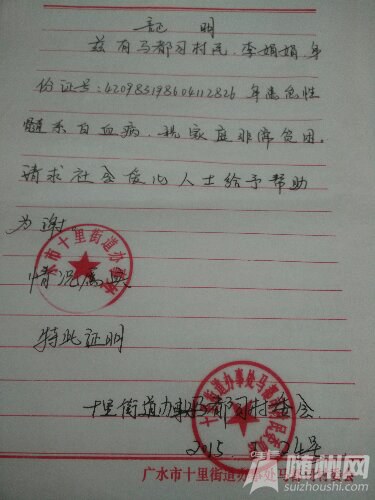 证明
兹有马都司村民,李娟娟,身
份证号:420983198604112826 年患急性
髓系白血病.现家庭非常贫困.
请求社会爱心人士给予帮助
为谢.
广水市十里街道办事处
情况属实
特此证明
十里街道办事处马都司村委会
2015
24号
广水市十里街道办
随州网
suizhoushi.com